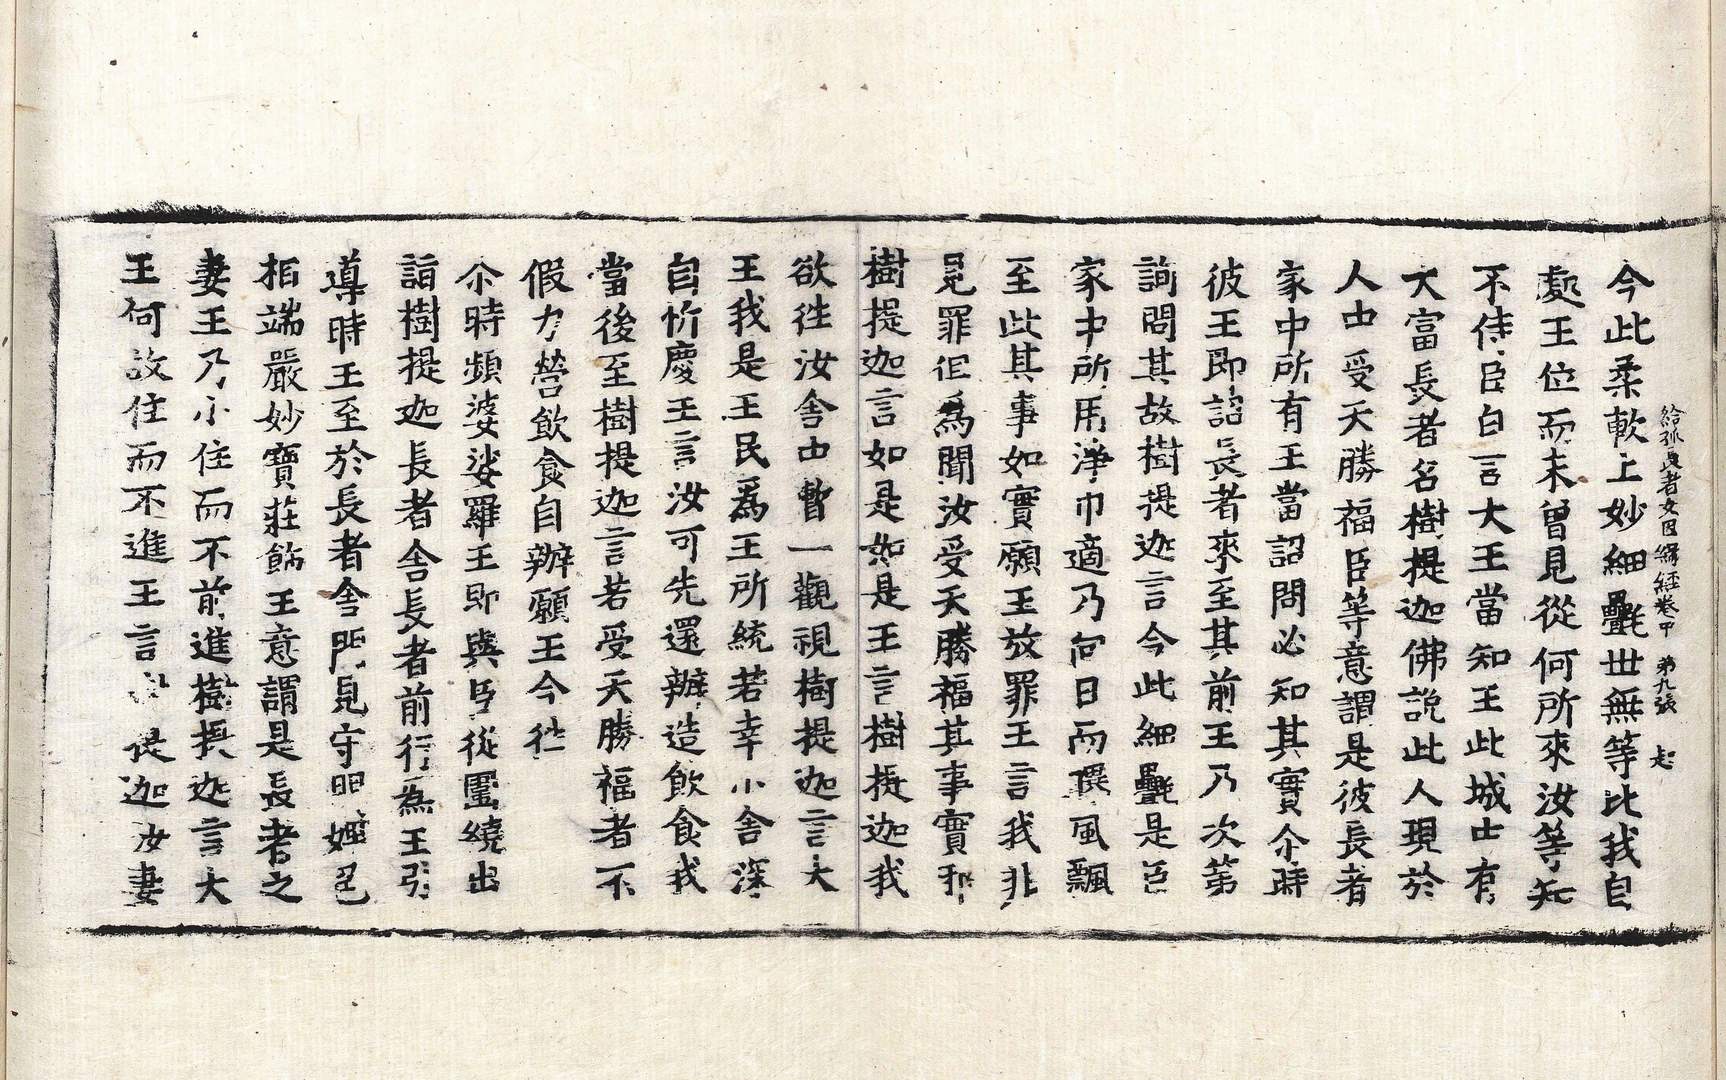 給孤長者女因緣經卷中 第九張 起
今此柔軟上妙細㲲世無等比我自
處王位而未曾見從何所來汝等知
不侍臣白言大王當知王此城中有
大富長者名樹提迦佛說此人現於
人中受天勝福臣等意謂是彼長者
家中所有王當詔問必知其實尒時
彼王即詔長者來至其前王乃次第
詢問其故樹提迦言今此細㲲是邑
家中所用淨巾適乃向日而㒨風飄
至此其事如實願王放罪王言我非
見罪但為聞汝受天勝福其事實和
樹提迦言如是如是王言樹提迦我
欲往汝舍中暫一觀視樹提迦言大
王我是王民為王所統若幸小舍深
自忻慶王言汝可先還辦造飲食我
當後至樹提迦言若受天勝福者不
假力營飲食自辦願王今往
尒時頻婆娑羅王即與臣從圍繞出
詣樹提迦長者舍長者前行為王引
導時王至於長者舍門見守門婢色
相端嚴妙寶莊飾王意謂是長者之
妻王乃小住而不前進樹提迦言大
王何故住而不進王言 提迦汝妻